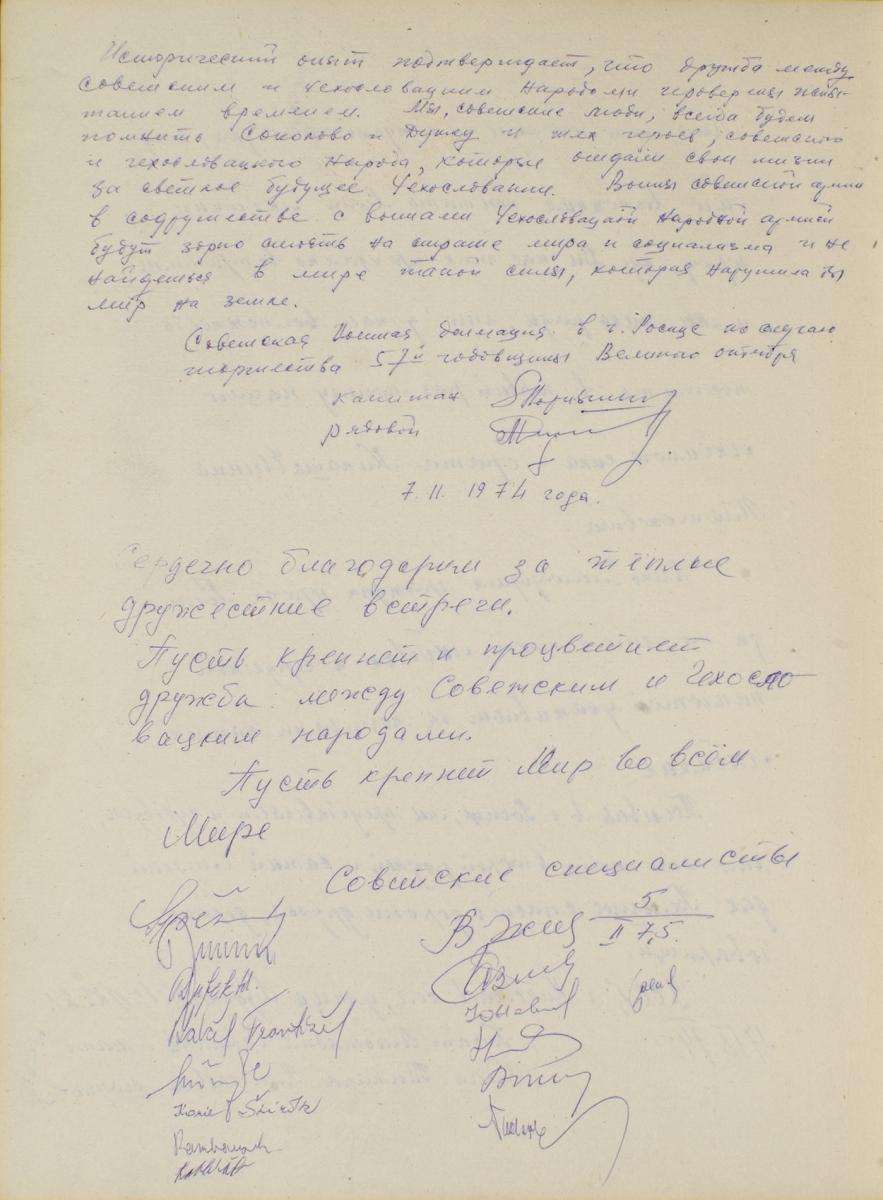 Исторический опыт подтверждает, что дружба между
советским и чехословацким народами проверена испы-
танием временем. Мы, советские люди, всегда будем
помнить Соколово и Дуклу и тех героев, советского
и чехословацкого народа, которые отдали свои жизни
за светлое будущее Чехословакии. Воины советской армии
в содружестве с воинами Чехословацкой народной армии
будут зорко стоять на страже мира и социализма и не
найдеться в мире такой силы, которая нарушила бы
мир на земле.
Советская Военная делегация в г. Росице по случаю
торжества 57й годовщины Великого октября
капитан
рядовой
7. 11. 1974 года.
Сердечно благодарим за тёплые
дружесткие встречи.
Пусть крепнет и процветает
дружба между Советским и Чехосло-
вацким народами.
Пусть крепнет Мир во всём
Мире
Советские специалисты
5
II 75.
František
Karel